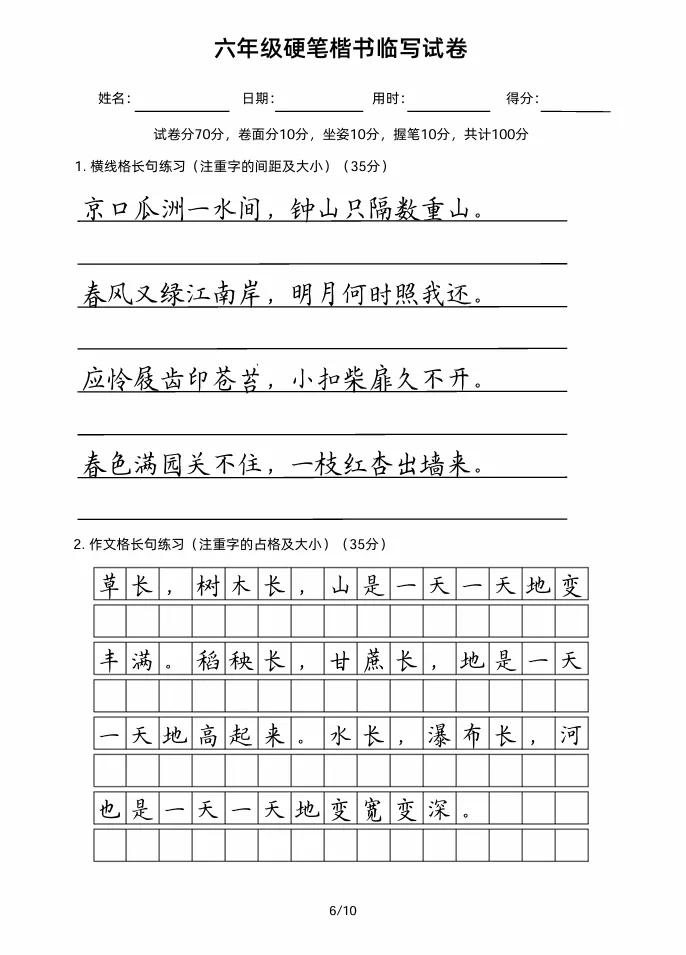 六年级硬笔楷书临写试卷
姓名： 日期： 用时： 得分：
试卷分70分，卷面分10分，坐姿10分，握笔10分，共计100分
1. 横线格长句练习（注重字的间距及大小）（35分）
京口瓜洲一水间，钟山只隔数重山。
春风又绿江南岸，明月何时照我还。
应怜屐齿印苍苔，小扣柴扉久不开。
春色满园关不住，一枝红杏出墙来。
2. 作文格长句练习（注重字的占格及大小）（35分）
草长，树木长，山是一天一天地变
丰满。稻秧长，甘蔗长，地是一天
一天地高起来。水长，瀑布长，河
也是一天一天地变宽变深。
6/10